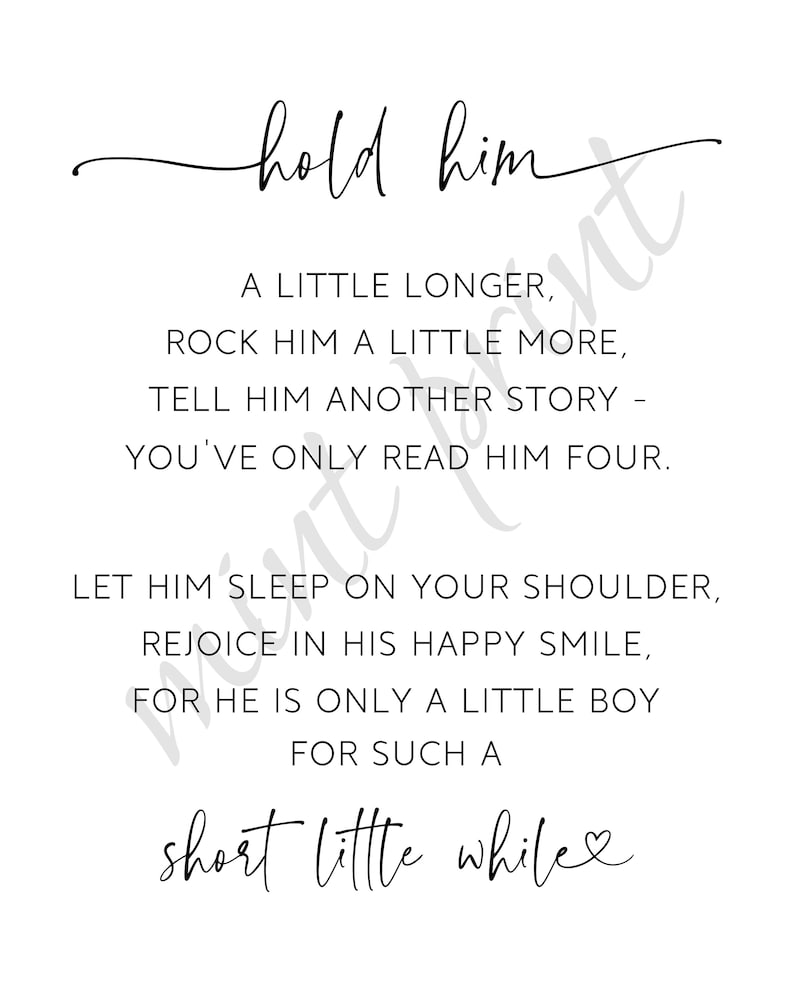 hold him
A LITTLE LONGER,
ROCK HIM A LITTLE MORE,
TELL HIM ANOTHER STORY -
YOU'VE ONLY READ HIM FOUR.
LET HIM SLEEP ON YOUR SHOULDER,
REJOICE IN HIS HAPPY SMILE,
FOR HE IS ONLY A LITTLE BOY
FOR SUCH A
short little while
mint print